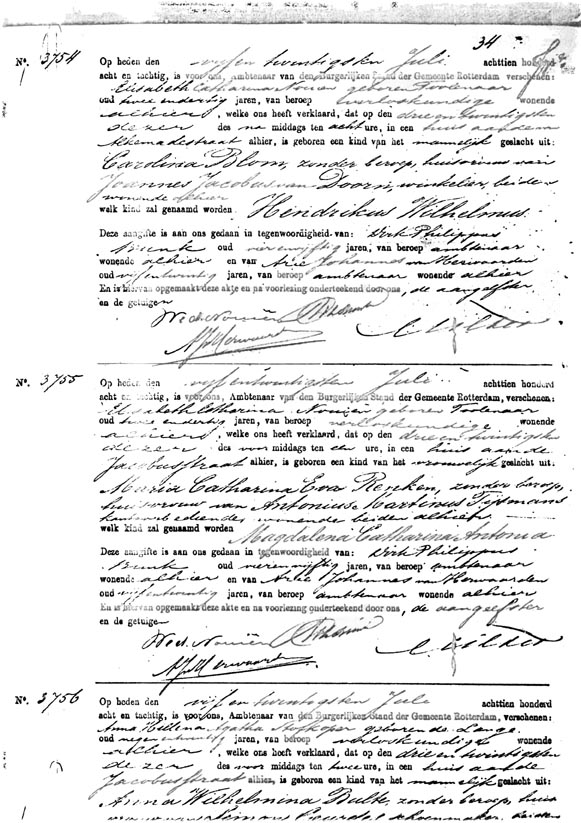 34
Nº. 3754 Op heden den vijf en twintigsten Juli achttien honderd
acht en tachtig, is voor ons, Ambtenaar van den Burgerlijken Stand der Gemeente Rotterdam verschenen:
Elisabeth Catharina Nouien geboren Toolenaar
oud twee en dertig jaren, van beroep verloskundige wonende
alhier, welke ons heeft verklaard, dat op den drie en twintigsten
dezer des na middags ten acht ure, in een huis aan de
alhier, is geboren een kind van het mannelijk geslacht uit:
Carolina Blom, zonder beroep, huisvrouw van
Joannes Jacobus van Doorn, winkelier, beiden
wonende alhier
welk kind zal genaamd worden Hendrikus Wilhelmus.
Deze aangifte is aan ons gedaan in tegenwoordigheid van: Dirk Philippus
Brink oud vier en vijftig jaren, van beroep ambtenaar
wonende alhier en van Arie Johannes van Herwaarden
oud vijf en twintig jaren, van beroep ambtenaar wonende alhier
En is hiervan opgemaakt deze akte en na voorlezing onderteekend door ons, de aangeefster
en de getuigen
Nº. 3755 Op heden den vijf en twintigsten Juli achttien honderd
acht en tachtig, is voor ons, Ambtenaar van den Burgerlijken Stand der Gemeente Rotterdam, verschenen:
Elisabeth Catharina Nouien geboren Toolenaar
oud twee en dertig jaren, van beroep verloskundige wonende
alhier, welke ons heeft verklaard, dat op den drie en twintigsten
dezer des voor middags ten elf ure, in een huis aan de
Jacobusstraat alhier, is geboren een kind van het vrouwelijk geslacht uit:
Maria Catharina Eva Renken, zonder beroep,
huisvrouw van Antonius Martinus Tijsmans
wonende beiden alhier
welk kind zal genaamd worden Magdalena Catharina Antonia
Deze aangifte is aan ons gedaan in tegenwoordigheid van: Dirk Philippus
Brink oud vier en vijftig jaren, van beroep ambtenaar
wonende alhier en van Arie Johannes van Herwaarden
oud vijf en twintig jaren, van beroep ambtenaar wonende alhier
En is hiervan opgemaakt deze akte en na voorlezing onderteekend door ons, de aangeefster
en de getuigen
Nº. 3756 Op heden den vijf en twintigsten Juli achttien honderd
acht en tachtig, is voor ons, Ambtenaar van den Burgerlijken Stand der Gemeente Rotterdam, verschenen:
Anna Helena Agatha Stofkoper geboren de Lange
oud jaren, van beroep verloskundige wonende
alhier, welke ons heeft verklaard, dat op den drie en twintigsten
dezer des voor middags ten twee ure, in een huis aan de
Jacobusstraat alhier, is geboren een kind van het mannelijk geslacht uit:
Anna Wilhelmina Bulte, zonder beroep, huis
schoenmaker, beiden